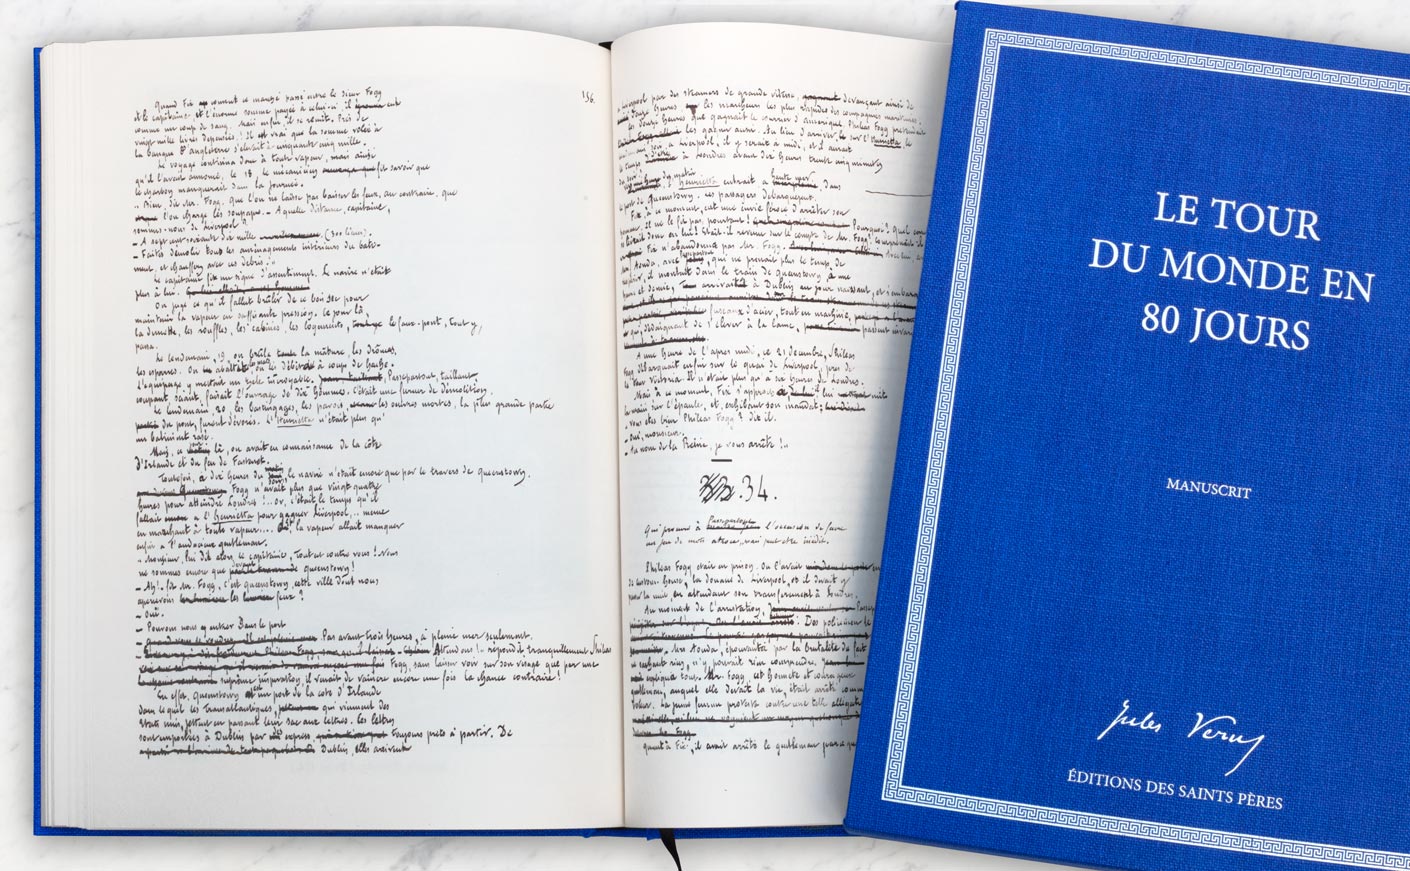 156.
Quand Fix connut ce marché passé entre le sieur Fogg
et le capitaine et l'énorme somme payée à celui-ci il eut
comme un coup de sang. Mais enfin il se remit. Près de
vingt mille livres dépensées ! Il est vrai que la somme volée à
la banque d'Angleterre s'élevait à cinquante cinq mille.
Le voyage continua donc à toute vapeur, mais ainsi
qu'il l'avait annoncé, le 18, le mécanicien fit savoir que
le charbon manquerait dans la journée.
- Bien, dit Mr. Fogg. Que l'on ne laisse pas baisser les feux, au contraire. que
l'on charge les soupapes. - A quelle distance, capitaine,
sommes-nous de Liverpool ?
- A sept cent soixante dix mille (300 lieues).
- Faites démolir tous les aménagements intérieurs du bâti-
ment, et chauffez avec ces débris."
Le capitaine fit un signe d'assentiment. Le navire n'était
plus à lui.
On juge ce qu'il fallut brûler de ce bois sec pour
maintenir la vapeur en suffisante pression. Ce jour là,
la dunette, les rouffles, les cabines, les logements, le faux-pont, tout y
passa.
Le lendemain, 19, on brûla la mâture, les drômes,
les esparres. On abattit les mâts, on les débita à coups de hache.
L'équipage y mettait un zèle incroyable. Passepartout, taillant,
coupant, sciant, faisait l'ouvrage de dix hommes. C'était une fureur de démolition.
Le lendemain 20, les bastingages, les pavois, les oeuvres mortes, la plus grande partie
du pont, furent dévorés. L'Henrietta n'était plus qu'
un bâtiment rasé.
Mais, ce jour là, on avait eu connaissance de la côte
d'Irlande et du feu de Fastenet.
Toutefois, à dix heures du soir, le navire n'était encore que par le travers de Queenstown.
Fogg n'avait plus que vingt quatre
heures pour atteindre Londres !.. Or, c'était le temps qu'il
fallait à l'Henrietta pour gagner Liverpool, .. même
en marchant à toute vapeur.... Et, la vapeur allait manquer
enfin à l'audacieux gentleman.
"Monsieur, lui dit alors le capitaine, tout est contre vous ! Nous
ne sommes encore que devant Queenstown !
- Ah !.. fit Mr. Fogg, c'est Queenstown, cette ville dont nous
apercevons les feux ?
- Oui.
- Pouvons nous y entrer dans le port
Pas avant trois heures, à pleine mer seulement.
Attendons !.. répondit tranquillement Phileas
Fogg, sans laisser voir sur son visage que par une
suprême inspiration il venait de vaincre encore une fois la chance contraire !
En effet, Queenstown est un port de la côte d'Irlande
dans lequel les Transatlantiques, qui viennent des
Etats Unis, jettent en passant leur sac aux lettres. Ces lettres
sont emportées à Dublin par des express toujours prêts à partir. De
Dublin, elles arrivent
Liverpool par des steamers de grande vitesse, devançant ainsi de
douze heures les marcheurs les plus rapides des compagnies maritimes.
heures que gagnait le courrier d'Amérique, Phileas Fogg
les gagner aussi. Au lieu d'arriver sur l'Henrietta, le
soir, à Liverpool, il y serait à midi, et il aurait
le temps d'être à Londres avant dix heures trente cinq minutes
du soir !
du matin, l'Henrietta entrait à haute mer, dans
le port de Queenstown. Ses passagers débarquèrent.
Fix, à ce moment, eut une envie féroce d'arrêter son
homme. Il ne le fit pas, pourtant ! Pourquoi ? Quel
était donc en lui ! Etait-il revenu sur le compte de Mr. Fogg ?
Fix n'abandonna pas Mr. Fogg. Avec lui,
Aouda, avec Passepartout, qui ne prenait plus le temps de
respirer, il montait dans le train de Queenstown à une
heure et demie, arrivait à Dublin au jour naissant, et
fuseaux d'acier, tout en machine,
qui, dédaignent de s'élever à la lame,
A une heure de l'après midi, ce 21 décembre, Phileas
Fogg débarquait enfin sur le quai de Liverpool,
Il n'était plus qu'à six heures de Londres.
Mais à ce moment, Fix s'approcha, lui mit
la main sur l'épaule, et, exhibant son mandat :
- vous êtes bien Phileas Fogg ? dit il.
- oui, monsieur.
- Au nom de la Reine, je vous arrête !"
34.
Qui procure à Passepartout l'occasion de faire
un jeu de mots atroce, mais peut être inédit.
Phileas Fogg était en prison. On l'avait
Custom-house, la douane de Liverpool, et il devait y
passer la nuit, en attendant son transfèrement à Londres.
Au moment de l'arrestation,
Des policemen le
Mrs Aouda, épouvantée par la brutalité du fait
ne sachant rien, n'y pouvait rien comprendre.
expliqua tout. Mr. Fogg, cet honnête et courageux
gentleman, auquel elle devait la vie, était arrêté comme
voleur. La jeune femme protesta contre une telle
Quant à Fix, il avait arrêté le gentleman parce que
LE TOUR
DU MONDE EN
80 JOURS
MANUSCRIT
Jules Verne
ÉDITIONS DES SAINTS PÈRES